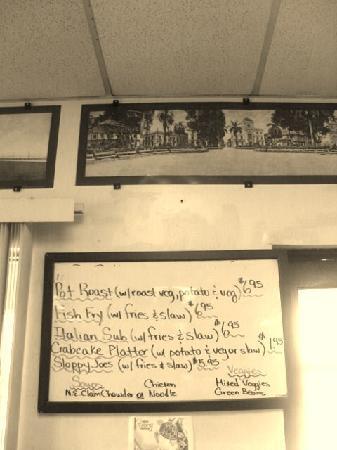 Pot Roast (w/roast veg, potato & veg) $6.95
Fish Fry (w/ fries & slaw) $6.95
Italian Sub (w/ fries & slaw) $6.95
Crabcake Platter (w/ potato & veg or slaw) $
Sloppy Joes (w/ fries & slaw) $5.95
Soups Veggies
Chicken Mixed Veggies
N.E. Clam Chowder or Noodle Green Beans